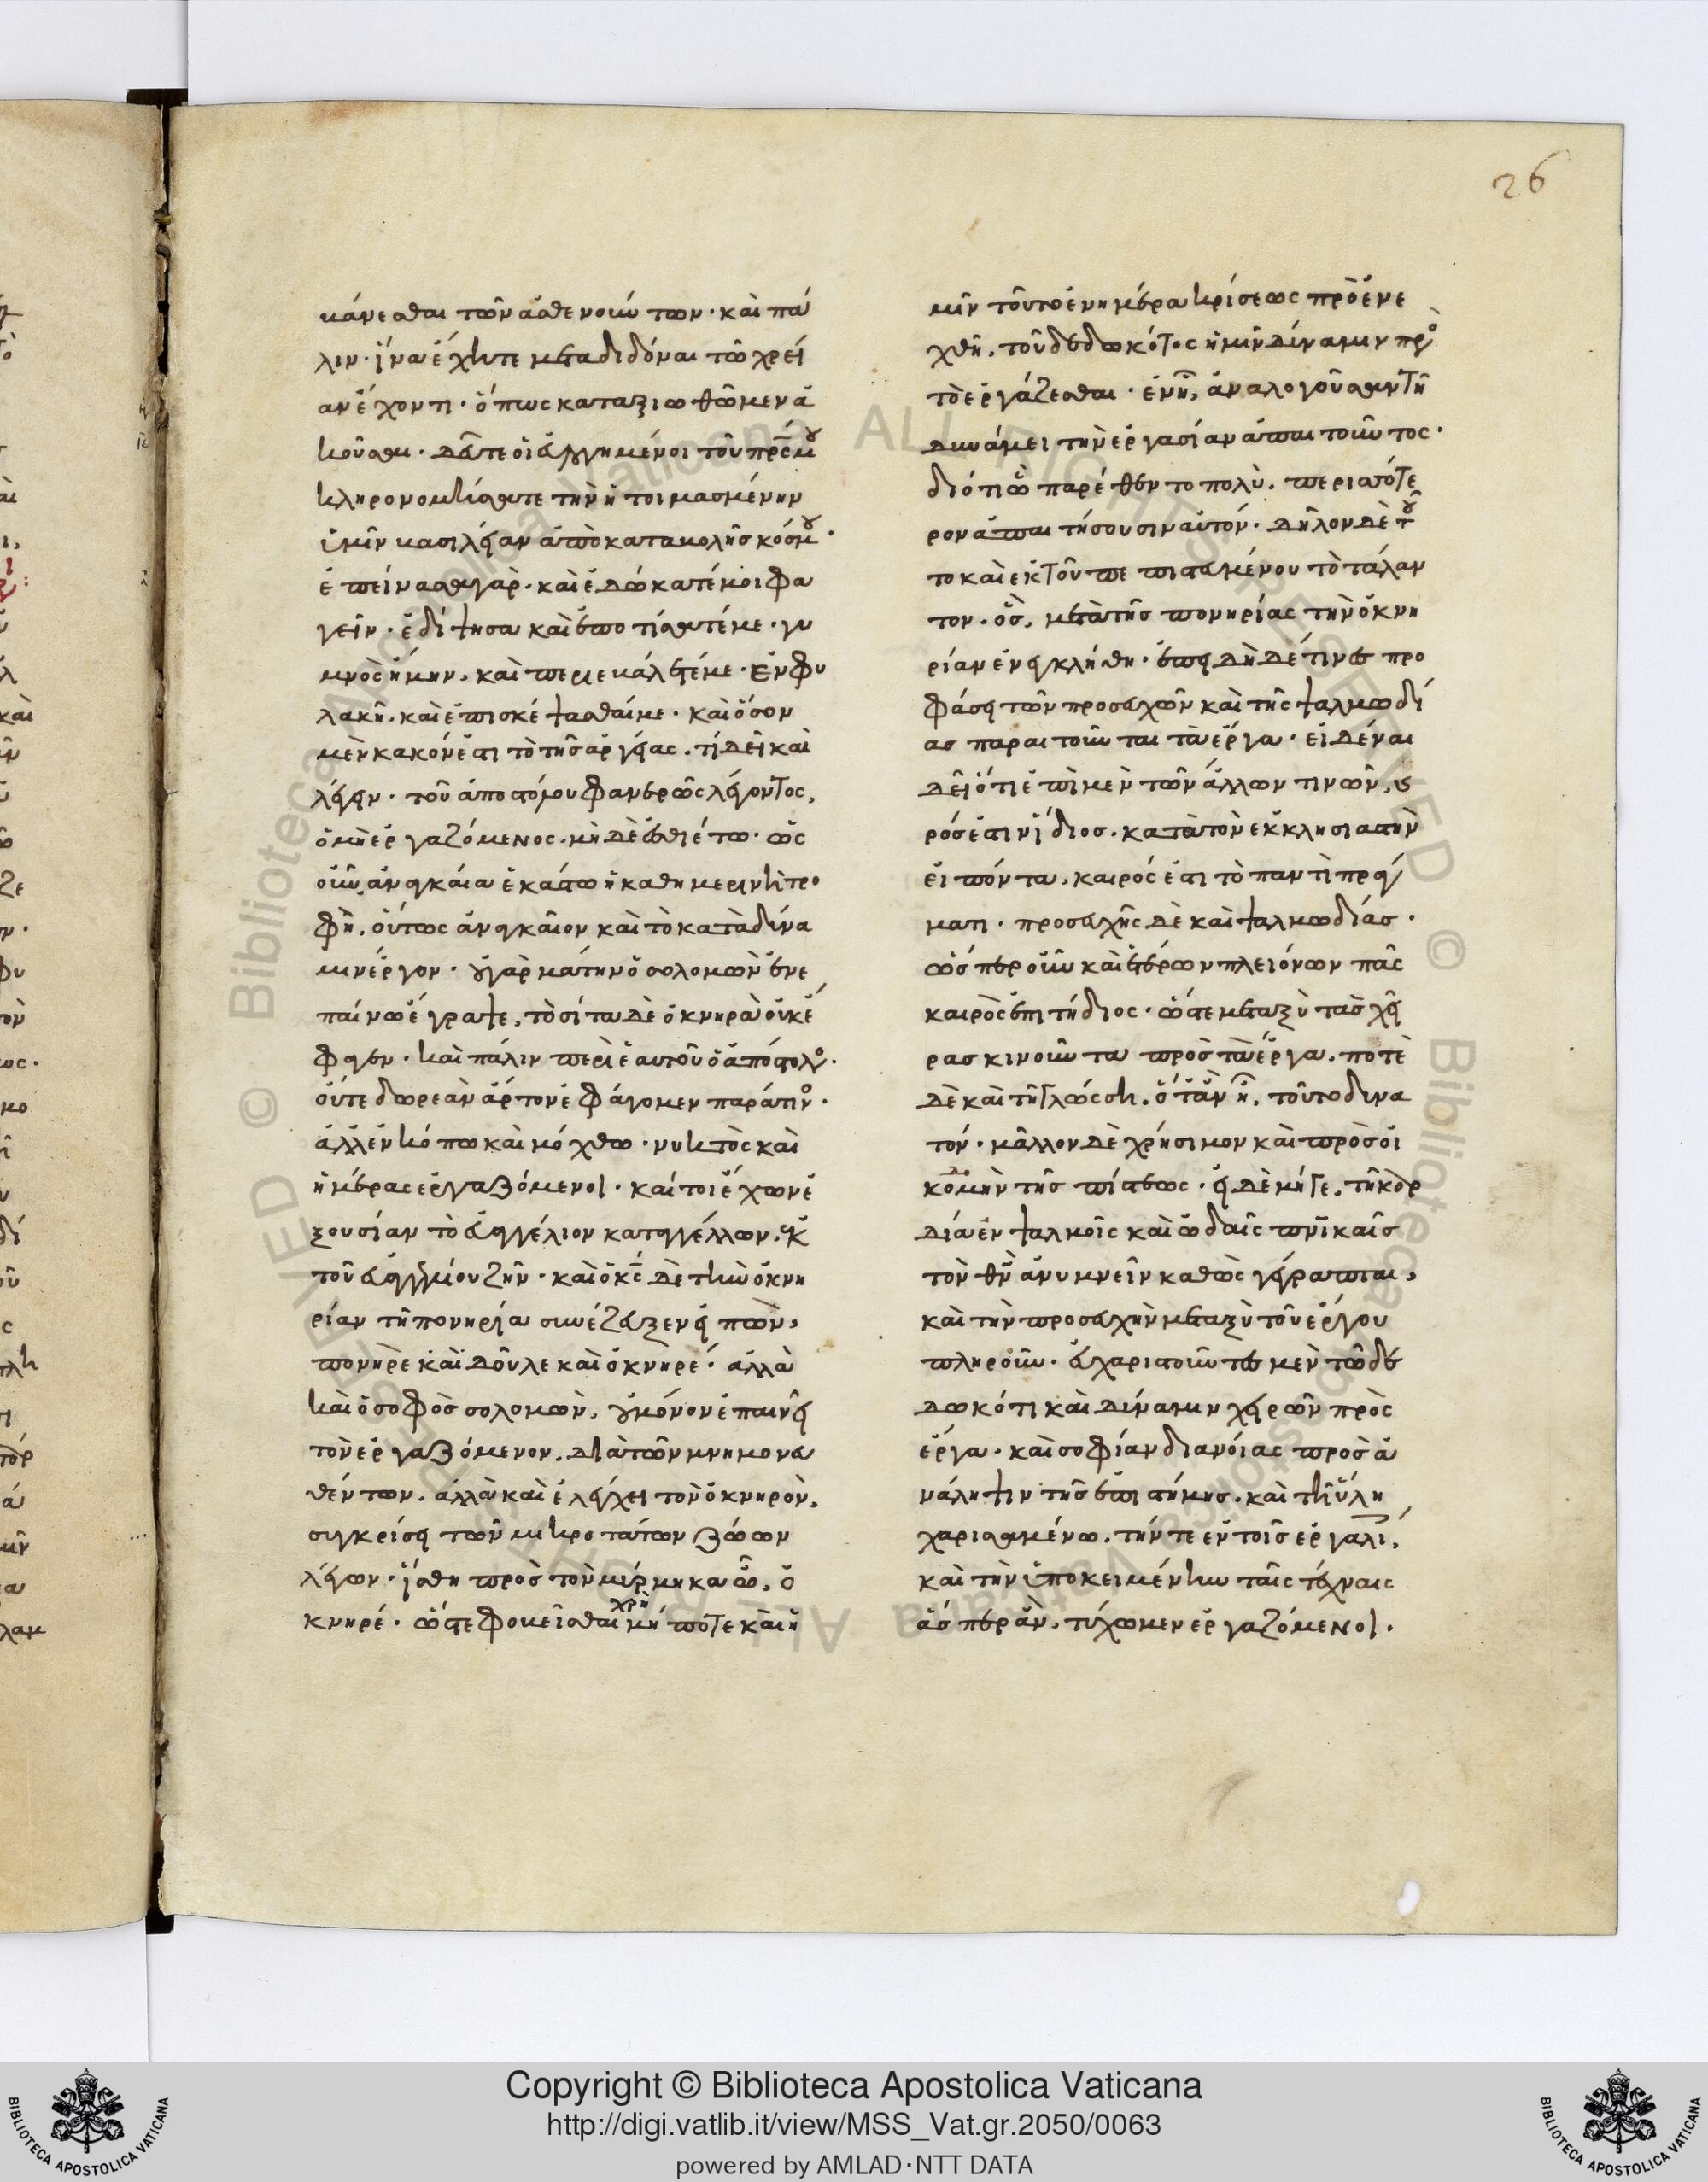 26
βάνεσθαι τῶν ἀσθενούντων· καὶ πά
λιν· ἵνα ἔχητε μεταδιδόναι τῶ χρεί
αν ἔχοντι· ὅπως καταξιωθῶμεν ἀ
κοῦσαι· δεῦτε οἱ εὐλογημένοι τοῦ πρς μου
κληρονομήσατε τὴν ἡτοιμασμένην
ὑμῖν βασιλείαν ἀπὸ καταβολῆς κόσμου·
ἐπείνασα γὰρ· καὶ ἐδώκατέ μοι φα
γεῖν· ἐδίψησα καὶ ἐποτίσατέ με· γυ
μνὸς ἤμην, καὶ περιεβάλετέ με· ἐν φυ
λακῆ· καὶ ἐπισκέψασθαί με· καὶ ὅσον
μὲν κακόν ἐστι τὸ τῆς ἀργείας· τί δεῖ καὶ
λέγειν· τοῦ ἀποστόλου φανερῶς λέγοντος,
ὁ μὴ ἐργαζόμενος· μὴ δὲ ἐσθιέτω· ὡς
οὖν ἀναγκαία ἑκάστω ἡ καθημερινὴ τρο
φὴ, οὕτως ἀναγκαῖον καὶ τὸ κατὰ δύνα
μιν ἔργον· οὐ γὰρ μάτην ὁ σολομὼν ἐν ἐ
παίνω ἔγραψε, τὸ σῖτα δὲ ὀκνηρὰ οὐκ ἔ
φαγεν· καὶ πάλιν περὶ ἑαυτοῦ ὁ ἀπόστολος·
οὔτε δωρεὰν ἄρτον ἐφάγομεν παρά τινος·
ἀλλ' ἐν κόπω καὶ μόχθω· νυκτὸς καὶ
ἡμέρας ἐργαζόμενοι· καίτοι ἔχων ἐ
ξουσίαν τὸ εὐαγγέλιον καταγγέλλων, ἐκ
τοῦ εὐαγγελίου ζῆν· καὶ ὁ κς δὲ τὴν ὀκνη
ρίαν τῆ πονηρία συνέζευξεν εἰπὼν,
πονηρὲ καὶ δοῦλε καὶ ὀκνηρέ· ἀλλὰ
καὶ ὁ σοφὸς σολομὼν, οὐ μόνον ἐπαινεῖ
τὸν ἐργαζόμενον, διὰ τῶν μνημονευ
θέντων, ἀλλὰ καὶ ἐλέγχει τὸν ὀκνηρὸν,
συγκρίσει τῶν μικροτάτων ζώων
λέγων· ἴσθη πρὸς τὸν μύρμηκα ὦ, ὀ
κνηρέ· ὥστε φοβεῖσθαι χρὴ μή ποτε καὶ ἡ
μῖν τοῦτο ἐν ἡμέρα κρίσεως προενε
χθῆ, τοῦ δεδωκότος ἡμῖν δύναμιν πρὸς
τὸ ἐργάζεσθαι· ἐν ἧ, ἀναλογοῦσαν τῆ
δυνάμει τὴν ἐργασίαν ἀπαιτοῦντος·
διότι ὧ παρέθεντο πολὺ, περισσότε
ρον ἀπαιτήσουσιν αὐτόν· δῆλον δὲ τοῦ
το καὶ ἐκ τοῦ πεπιστευμένου τὸ τάλαν
τον· ὃς, μετὰ τῆς πονηρίας τὴν ὀκνη
ρίαν ἐνεκλήθη· ἐπεὶ δὴ δέ τινες προ
φάσει τῶν προσευχῶν καὶ τῆς ψαλμωδί
ας παραιτοῦνται τὰ ἔργα· εἰδέναι
δεῖ ὅτι ἐπὶ μὲν τῶν ἄλλων τινῶν, και
ρός ἐστιν ἴδιος· κατὰ τὸν ἐκκλησιαστὴν
εἰπόντα, καιρός ἐστι τὸ παντὶ πράγ
ματι· προσευχῆς δὲ καὶ ψαλμωδίας·
ὥσπερ οὖν καὶ ἑτέρων πλειόνων πᾶς
καιρὸς ἐπιτήδιος· ὥστε μεταξὺ τὰς χεῖ
ρας κινοῦντα πρὸς τὰ ἔργα, ποτὲ
δὲ καὶ τῆ γλώσση, ὅταν ἦ, τοῦτο δυνα
τόν· μᾶλλον δὲ χρήσιμον καὶ πρὸς οἰ
κοδομὴν τῆς πίστεως· εἰ δὲ μήγε, τῆ καρ
δία ἐν ψαλμοῖς καὶ ὠδαῖς πνικαῖς
τὸν θν ἀνυμνεῖν καθὼς γέγραπται,
καὶ τὴν προσευχὴν μεταξὺ τοῦ ἔργου
πληροῦν· εὐχαριστοῦντες μὲν τῶ δε
δωκότι καὶ δύναμιν χειρῶν πρὸς
ἔργα· καὶ σοφίαν διανοίας πρὸς ἀ
νάληψιν τῆς ἐπιστήμης· καὶ τὴν ὕλη
χαρισαμένω, τήν τε ἐν τοῖς ἐργαλεί,
καὶ τὴν ὑποκειμένην ταῖς τέχναις
ἅσπερ ἂν, τύχωμεν ἐργαζόμενοι·
Copyright © Biblioteca Apostolica Vaticana
http://digi.vatlib.it/view/MSS_Vat.gr.2050/0063
powered by AMLAD·NTT DATA